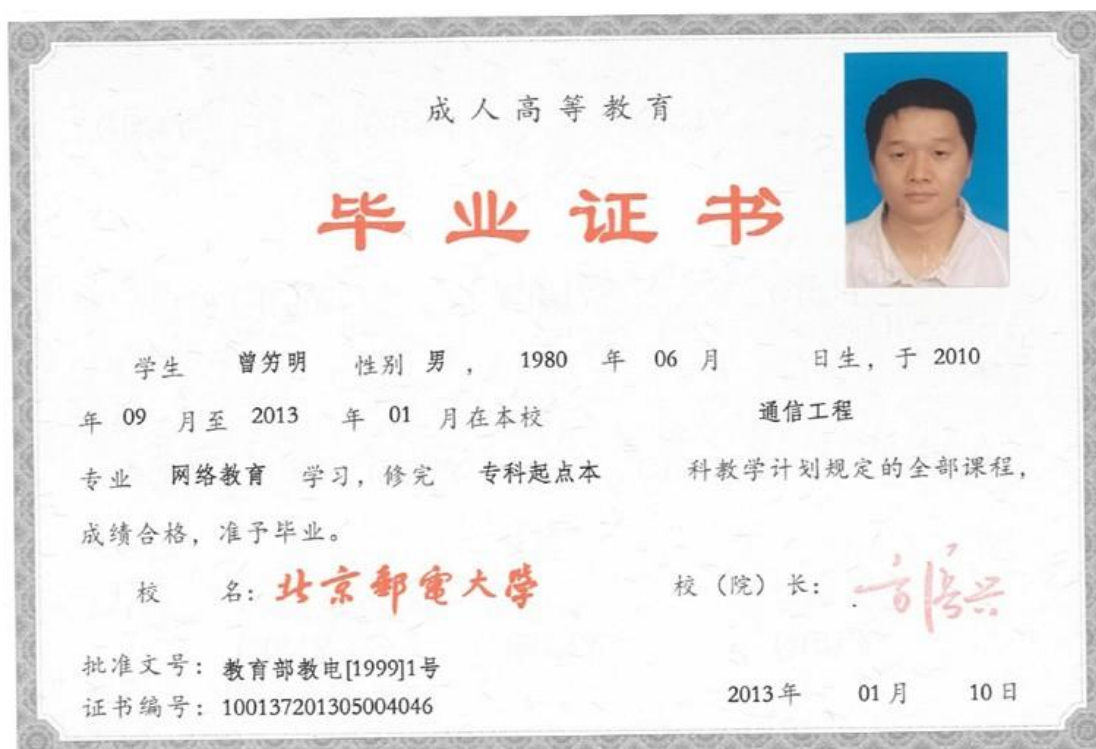 成人高等教育
毕业证书
学生 曾竻明 性别 男 ， 1980 年 06 月 日生，于 2010
年 09 月至 2013 年 01 月在本校 通信工程
专业 网络教育 学习，修完 专科起点本 科教学计划规定的全部课程，
成绩合格，准予毕业。
校 名：北京郵電大學 校（院）长：方滨兴
批准文号：教育部教电[1999]1号
证书编号：100137201305004046
2013年 01月 10日